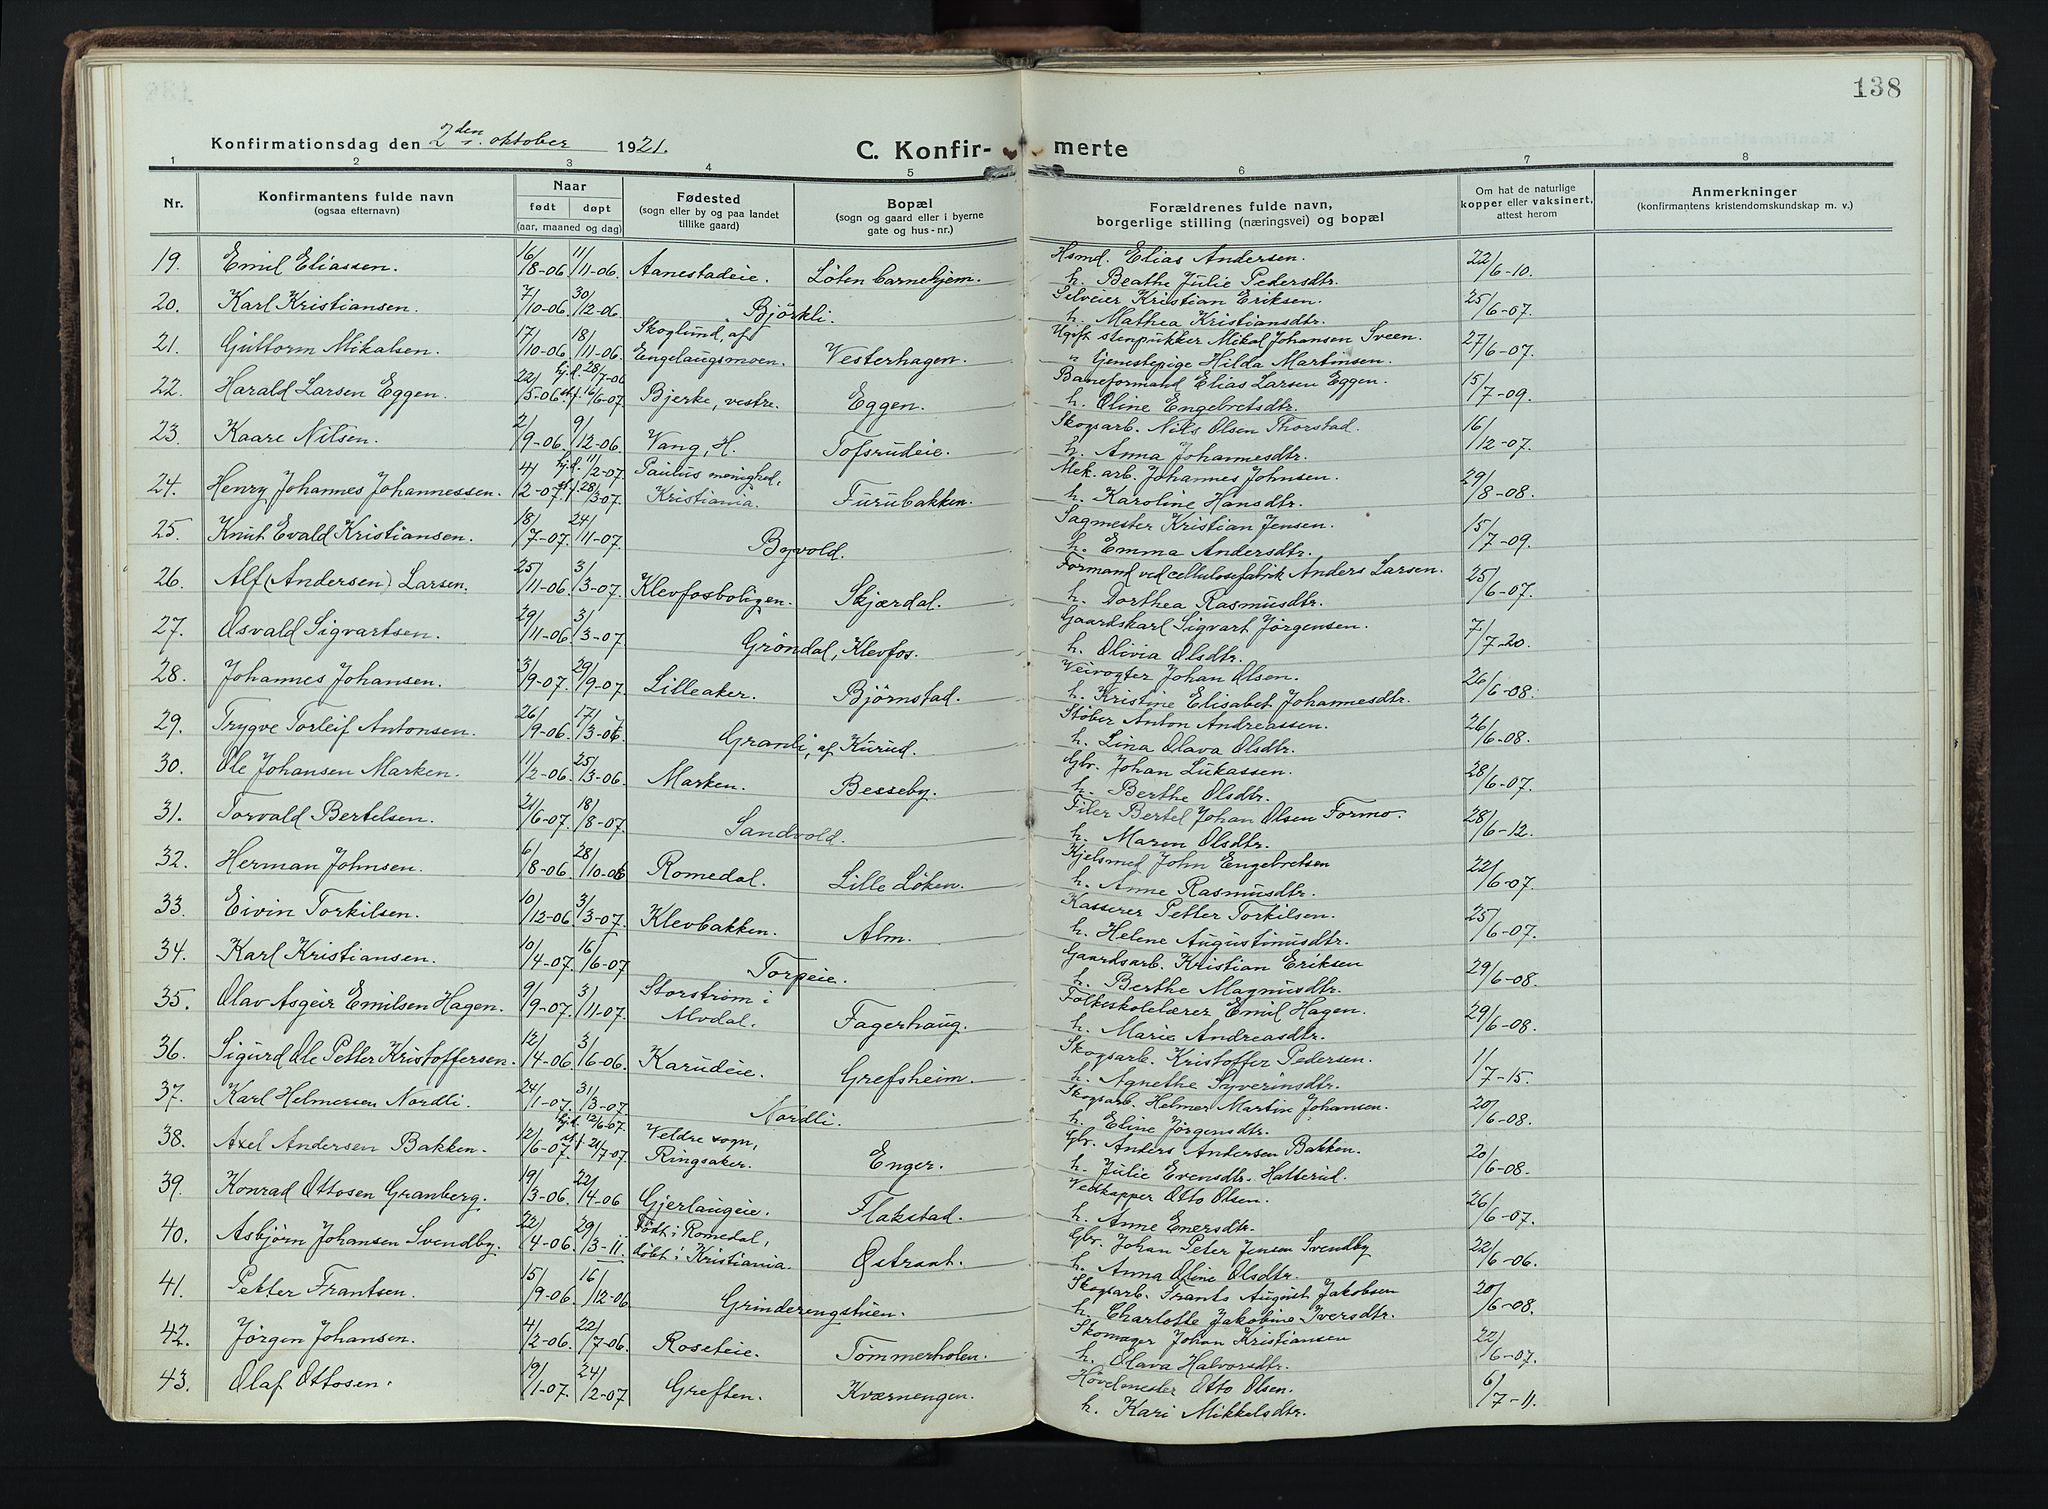 138
Konfirmationsdag den 2den oktober 1921.
C. Konfirmerte
1 2 3 4 5 6 7 8
Nr.
Konfirmantens fulde navn
(ogsaa efternavn)
Naar
født døpt
(aar, maaned og dag)
Fødested
(sogn eller by og paa landet
tillike gaard)
Bopæl
(sogn og gaard eller i byerne
gate og hus-nr.)
Forældrenes fulde navn,
borgerlige stilling (næringsvei) og bopæl
Om hat de naturlige
kopper eller vaksinert,
attest herom
Anmerkninger
(konfirmantens kristendomskundskap m. v.)
19. Emil Eliassen. 16/8-06 11/11-06. Aanestadeie. Løten barnehjem. Hsmd. Elias Andersen. 22/6-10.
h. Beathe Julie Pedersdtr.
20. Karl Kristiansen. 7/10-06 30/12-06. Bjørkli. Selveier Kristian Eriksen. 25/6-07.
h. Mathea Kristiansdtr.
21. Guttorm Mikalsen. 17/10-06 18/11-06. Skoglund, af Engelaugsmoen. Vesterhagen. Ugift stenpukker Mikal Johansen Sveen. 27/6-07.
" tjenestepige Hilda Martinsen.
22. Harald Larsen Eggen. 22/5-06. hj.d. 28/7-06 st.f. 16/6-07. Bjerke, vestre. Eggen. Baneformand Elias Larsen Eggen. 15/7-09.
h. Oline Engebretsdtr.
23. Kaare Nilsen. 2/9-06. 9/12-06. Vang, H. Tofsrudeie. Skogsarb. Nils Olsen Thorstad. 16/12-07.
h. Anna Johannesdtr.
24. Henry Johannes Johannessen. 4/2-07. hj.d. 11/2-07. st.f. 28/3-07. Paulus menighed, Kristiania. Furubakken. Mek. arb. Johannes Johnsen. 29/8-08.
h. Karoline Hansdtr.
25. Knut Evald Kristiansen. 18/7-07. 24/11-07. Byvold. Sagmester Kristian Jensen. 15/7-09.
h. Emma Andersdtr.
26. Alf (Andersen) Larsen. 25/11-06 3/3-07. Klevfosboligen. Skjærdal. Formand ved cellulosefabrik Anders Larsen. 25/6-07.
h. Dorthea Rasmusdtr.
27. Osvald Sigvartsen. 29/11-06 3/3-07. Grøndal, Klevfos. Gaardskarl Sigvart Jørgensen. 7/7-20.
h. Olivia Olsdtr.
28. Johannes Johansen. 3/9-07. 29/9-07. Lilleaker. Bjørnstad. Veivogter Johan Olsen. 26/6-08.
h. Kristine Elisabet Johannesdtr.
29. Trygve Torleif Antonsen. 26/9-06. 17/3-06. Granli, af Kurud. Støber Anton Andreassen. 26/6-08.
h. Lina Olava Olsdtr.
30. Ole Johansen Marken. 11/2-06. 25/3-06. Marken. Besseby. Gbr. Johan Lukassen. 28/6-07.
h. Berthe Olsdtr.
31. Torvald Bertelsen. 21/6-07. 18/8-07. Sandvold. Filer Bertel Johan Olsen Formo. 28/6-12.
h. Maren Olsdtr.
32. Herman Johnsen. 6/8-06. 28/10-06. Romedal. Lille Løken. Kjelsmed John Engebretsen 22/6-07.
h. Anne Rasmusdtr.
33. Eivin Torkilsen. 10/12-06 3/3-07. Klevbakken. Alm. Kasserer Petter Torkilsen. 25/6-07.
h. Helene Augustinusdtr.
34. Karl Kristiansen. 10/4-07. 16/6-07. Torpeie. Gaardsarb. Kristian Eriksen 29/6-08.
h. Berthe Magnusdtr.
35. Olav Asgeir Emilsen Hagen. 9/9-07. 3/11-07. Storstrøm i Alvdal. Fagerhaug. Folkeskolelærer Emil Hagen. 29/6-08.
h. Marie Andreasdtr.
36. Sigurd Ole Petter Kristoffersen. 12/4-06. 3/6-06. Karudeie. Grefsheim. Skogsarb. Kristoffer Pedersen. 1/7-15.
h. Agnethe Syverinsdtr.
37. Karl Helmersen Nordli. 24/1-07. 31/3-07. Nordli. Skogsarb. Helmer Martin Johansen. 20/6-08.
h. Eline Jørgensdtr.
38. Axel Andersen Bakken. 12/6-07. hj.d. 12/6-07. st.f. 21/7-07. Veldre sogn, Ringsaker. Enger. Gbr. Anders Andersen Bakken. 20/6-08.
h. Julie Evensdtr. Hatterud.
39. Konrad Ottosen Granberg. 19/3-06. 22/4-06 Gjerlaugeie. Flakstad. Vedkapper Otto Olsen. 26/6-07.
h. Anne Enersdtr.
40. Asbjørn Johansen Svendby. 22/4-06. 29/3-11. Født i Romedal, døbt i Kristiania. Østrant. Gbr. Johan Peter Jensen Svendby 22/6-06.
h. Anna Oline Olsdtr.
41. Petter Frantsen. 15/9-06. 16/12-06 Grinderengstuen. Skogsarb. Frants August Jakobsen 20/6-08.
h. Charlotte Jakobine Iversdtr.
42. Jørgen Johansen. 4/2-06. 22/7-06. Roseteie. Tømmerholen. Skomager Johan Kristiansen 22/6-07.
h. Olava Halvorsdtr.
43. Olaf Ottosen. 19/1-07. 24/2-07 Greften. Kværnengen. Høvelmester Otto Olsen. 6/7-11.
h. Kari Mikkelsdtr.